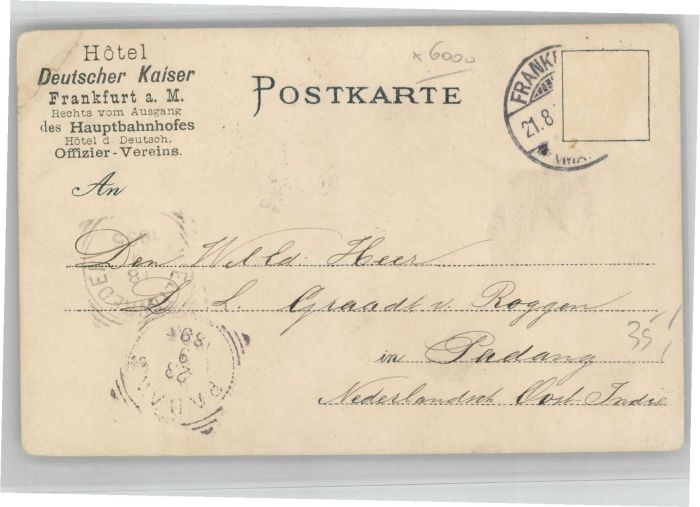 Hôtel
Deutscher Kaiser
Frankfurt a. M.
Rechts vom Ausgang
des Hauptbahnhofes
Hôtel d. Deutsch.
Offizier-Vereins.
POSTKARTE
x 6000
FRANKF
21.8
An
Den Wel.Ed: Heer
D. L. Graadt v. Roggen
in Padang
Nederlandsch Oost-Indie
35,
PADANG
23
9